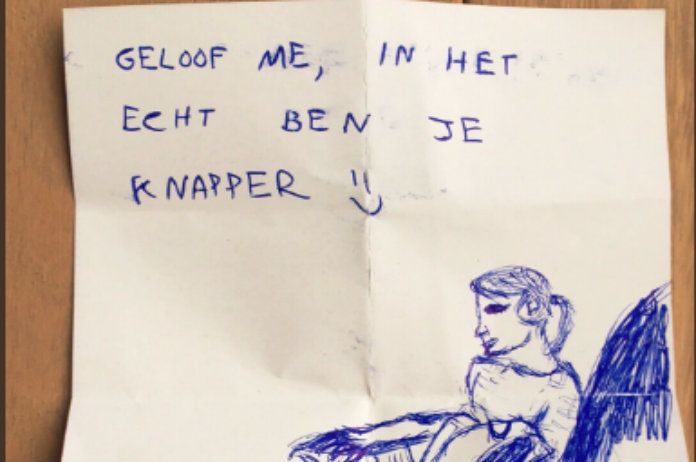 GELOOF ME, IN HET
ECHT BEN JE
KNAPPER